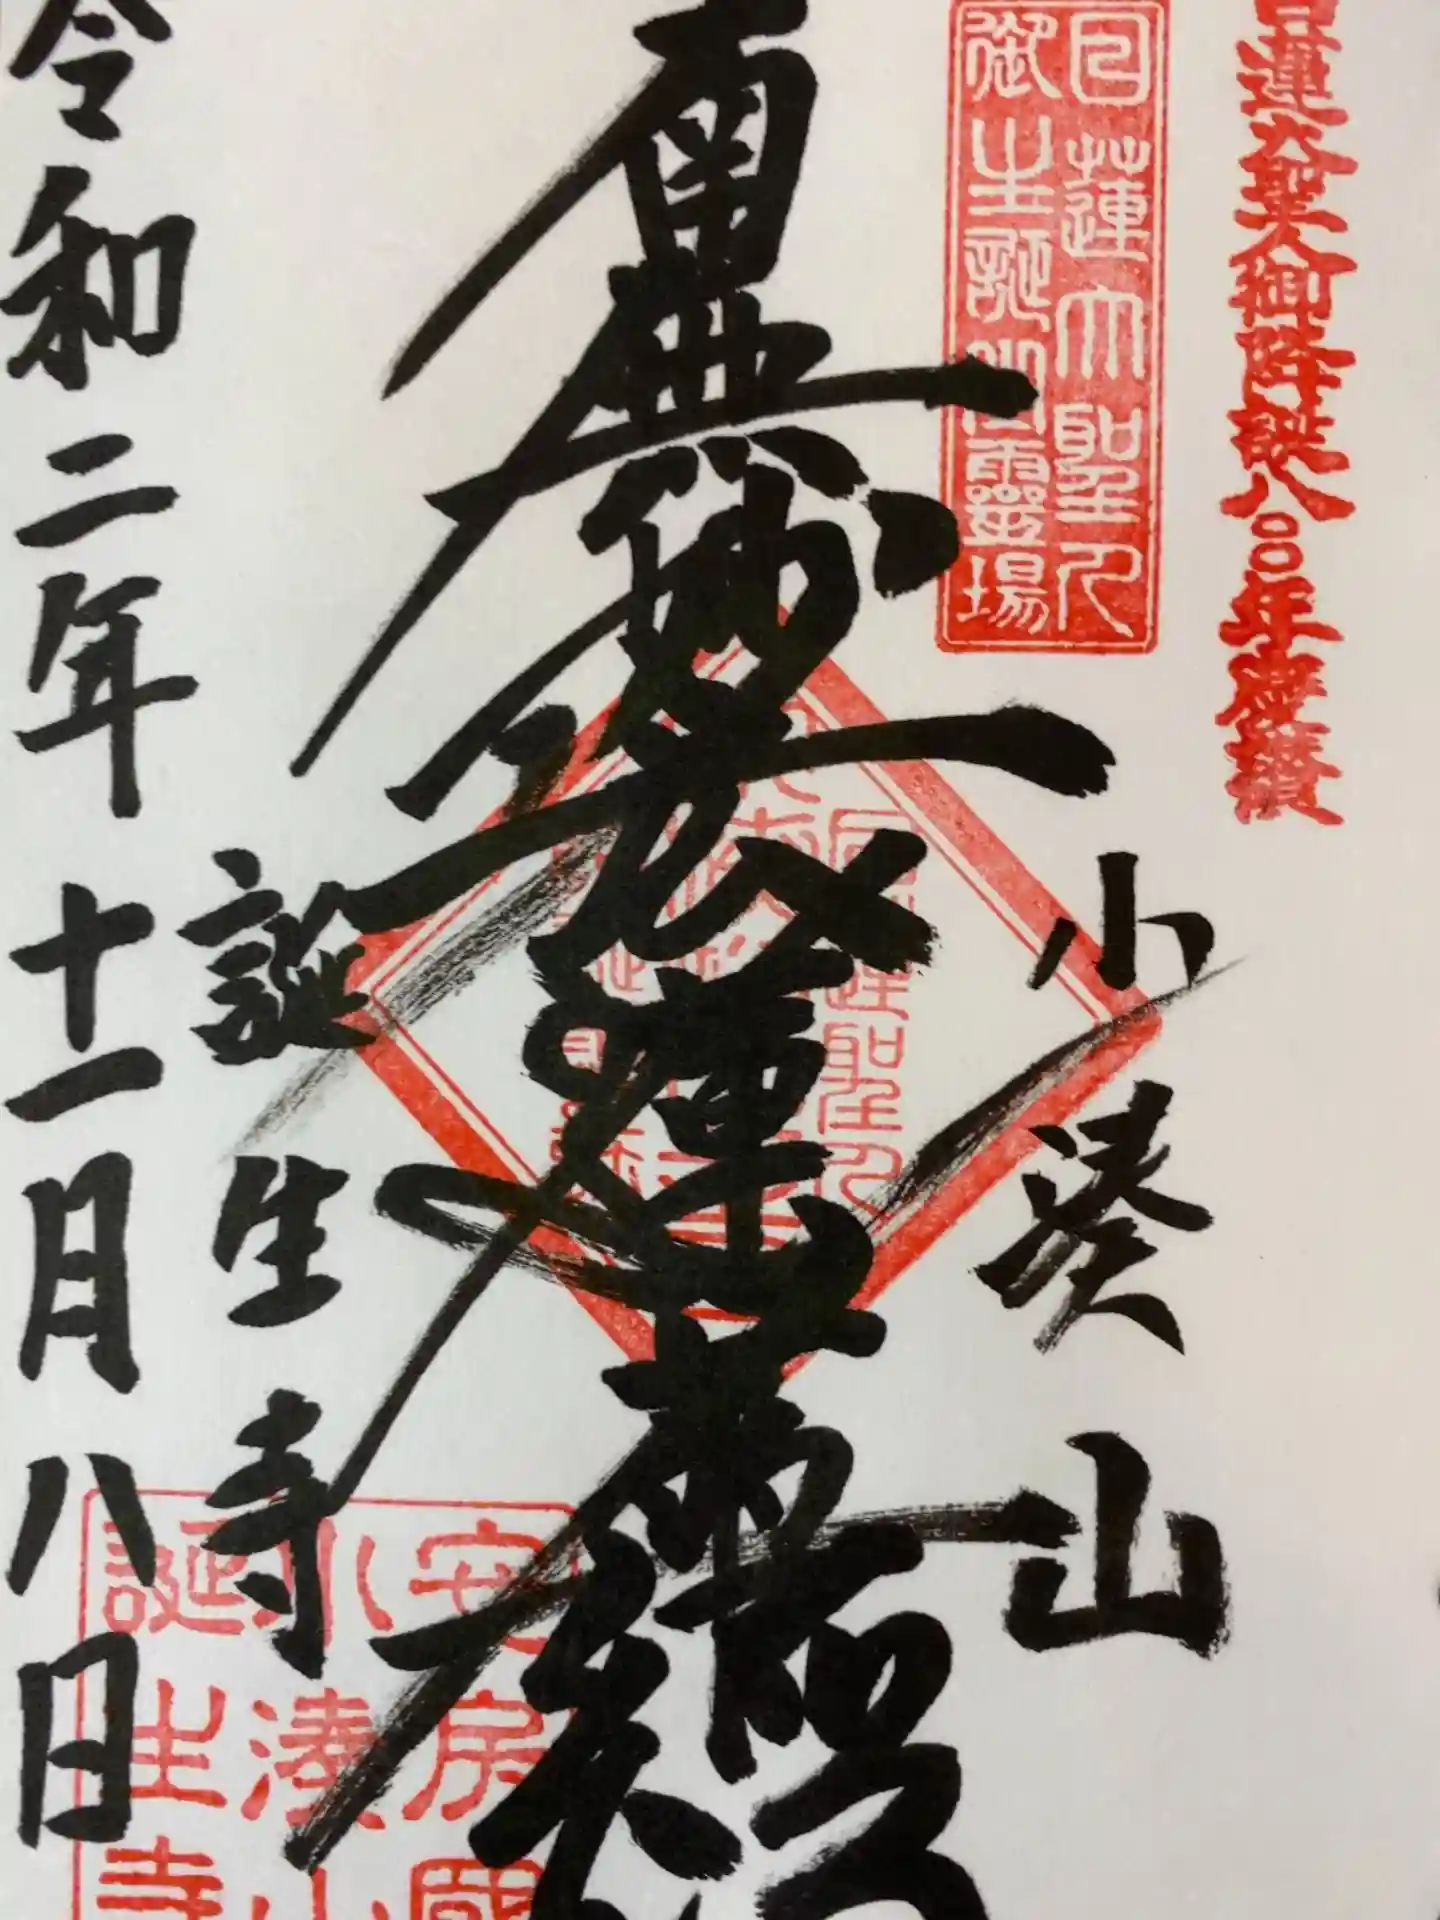 日蓮大聖人御降誕八〇〇年慶讃
日蓮大聖人
御生誕山霊場
小湊山
南無妙法蓮華経
誕生寺
令和二年十一月八日
安房國
小湊山
誕生寺